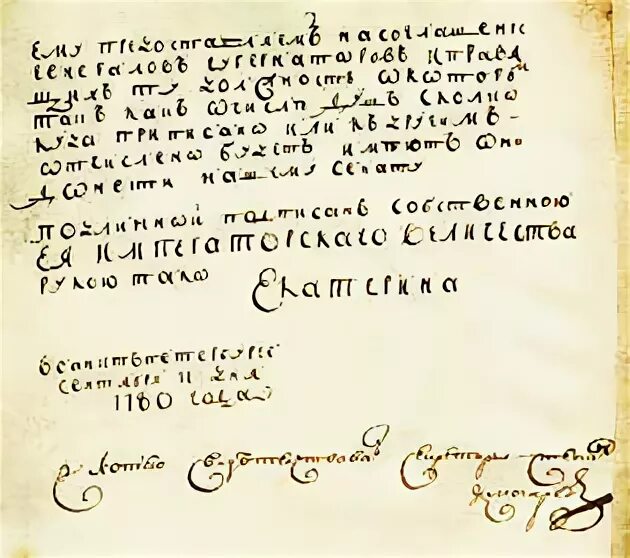 ему предоставляемъ насоглашение
генераловъ губернаторовъ иправя
щихъ ту должность окоторы
такъ какъ очисле душъ сколко
куда приписано или къдругимъ
отчислено будетъ имеютъ оно
донести нашему сенату
подлинный подписанъ собственною
ея императорскаго величества
рукою тако Екатерина
всанктъпетербурге
сентября 11 дня
1780 года